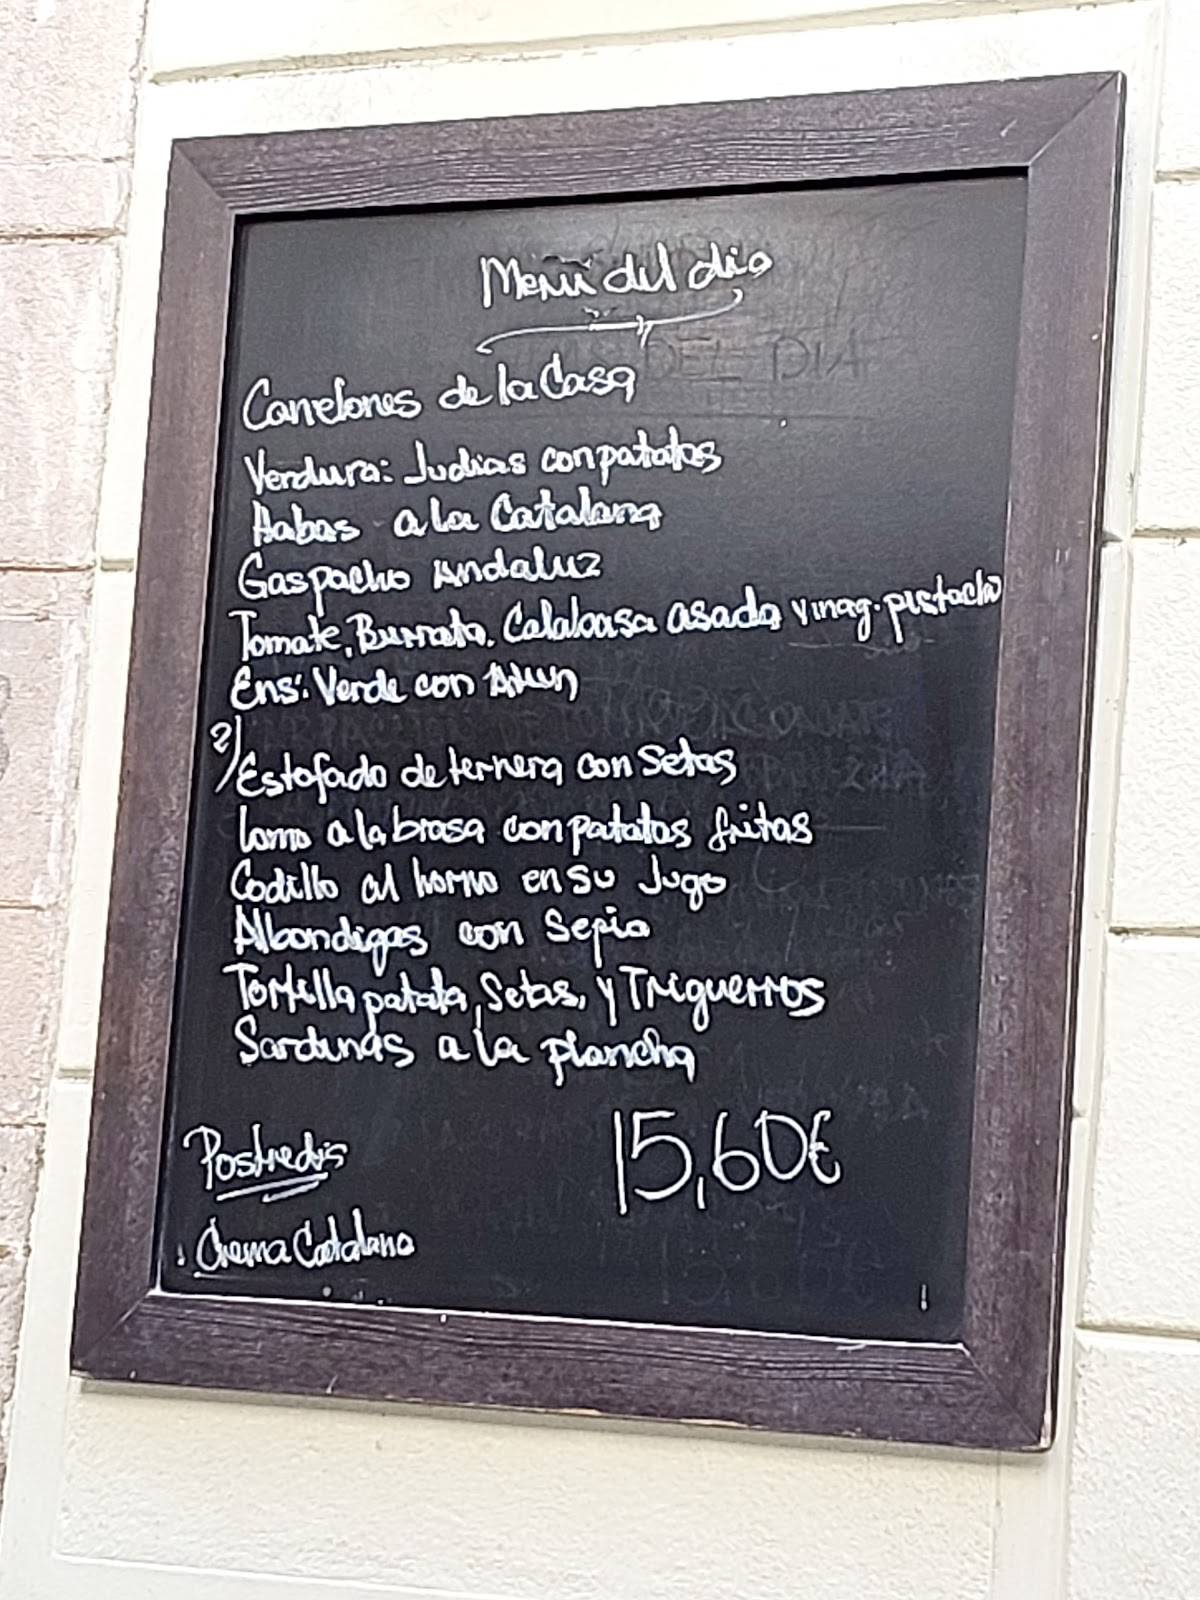 Menú del día
Canelones de la Casa
Verdura: Judias con patatas
Habas a la Catalana
Gaspacho Andaluz
Tomate, Burrata. Calabasa asada vinag. pistacho
Ens: Verde con Atun
2/
Estofado de ternera con Setas
Lomo a la brasa con patatas fritas
Codillo al horno en su Jugo
Albondigas con Sepia
Tortilla patata, Setas, y Triguerros
Sardinas a la plancha
15,60€
Crema Catalana